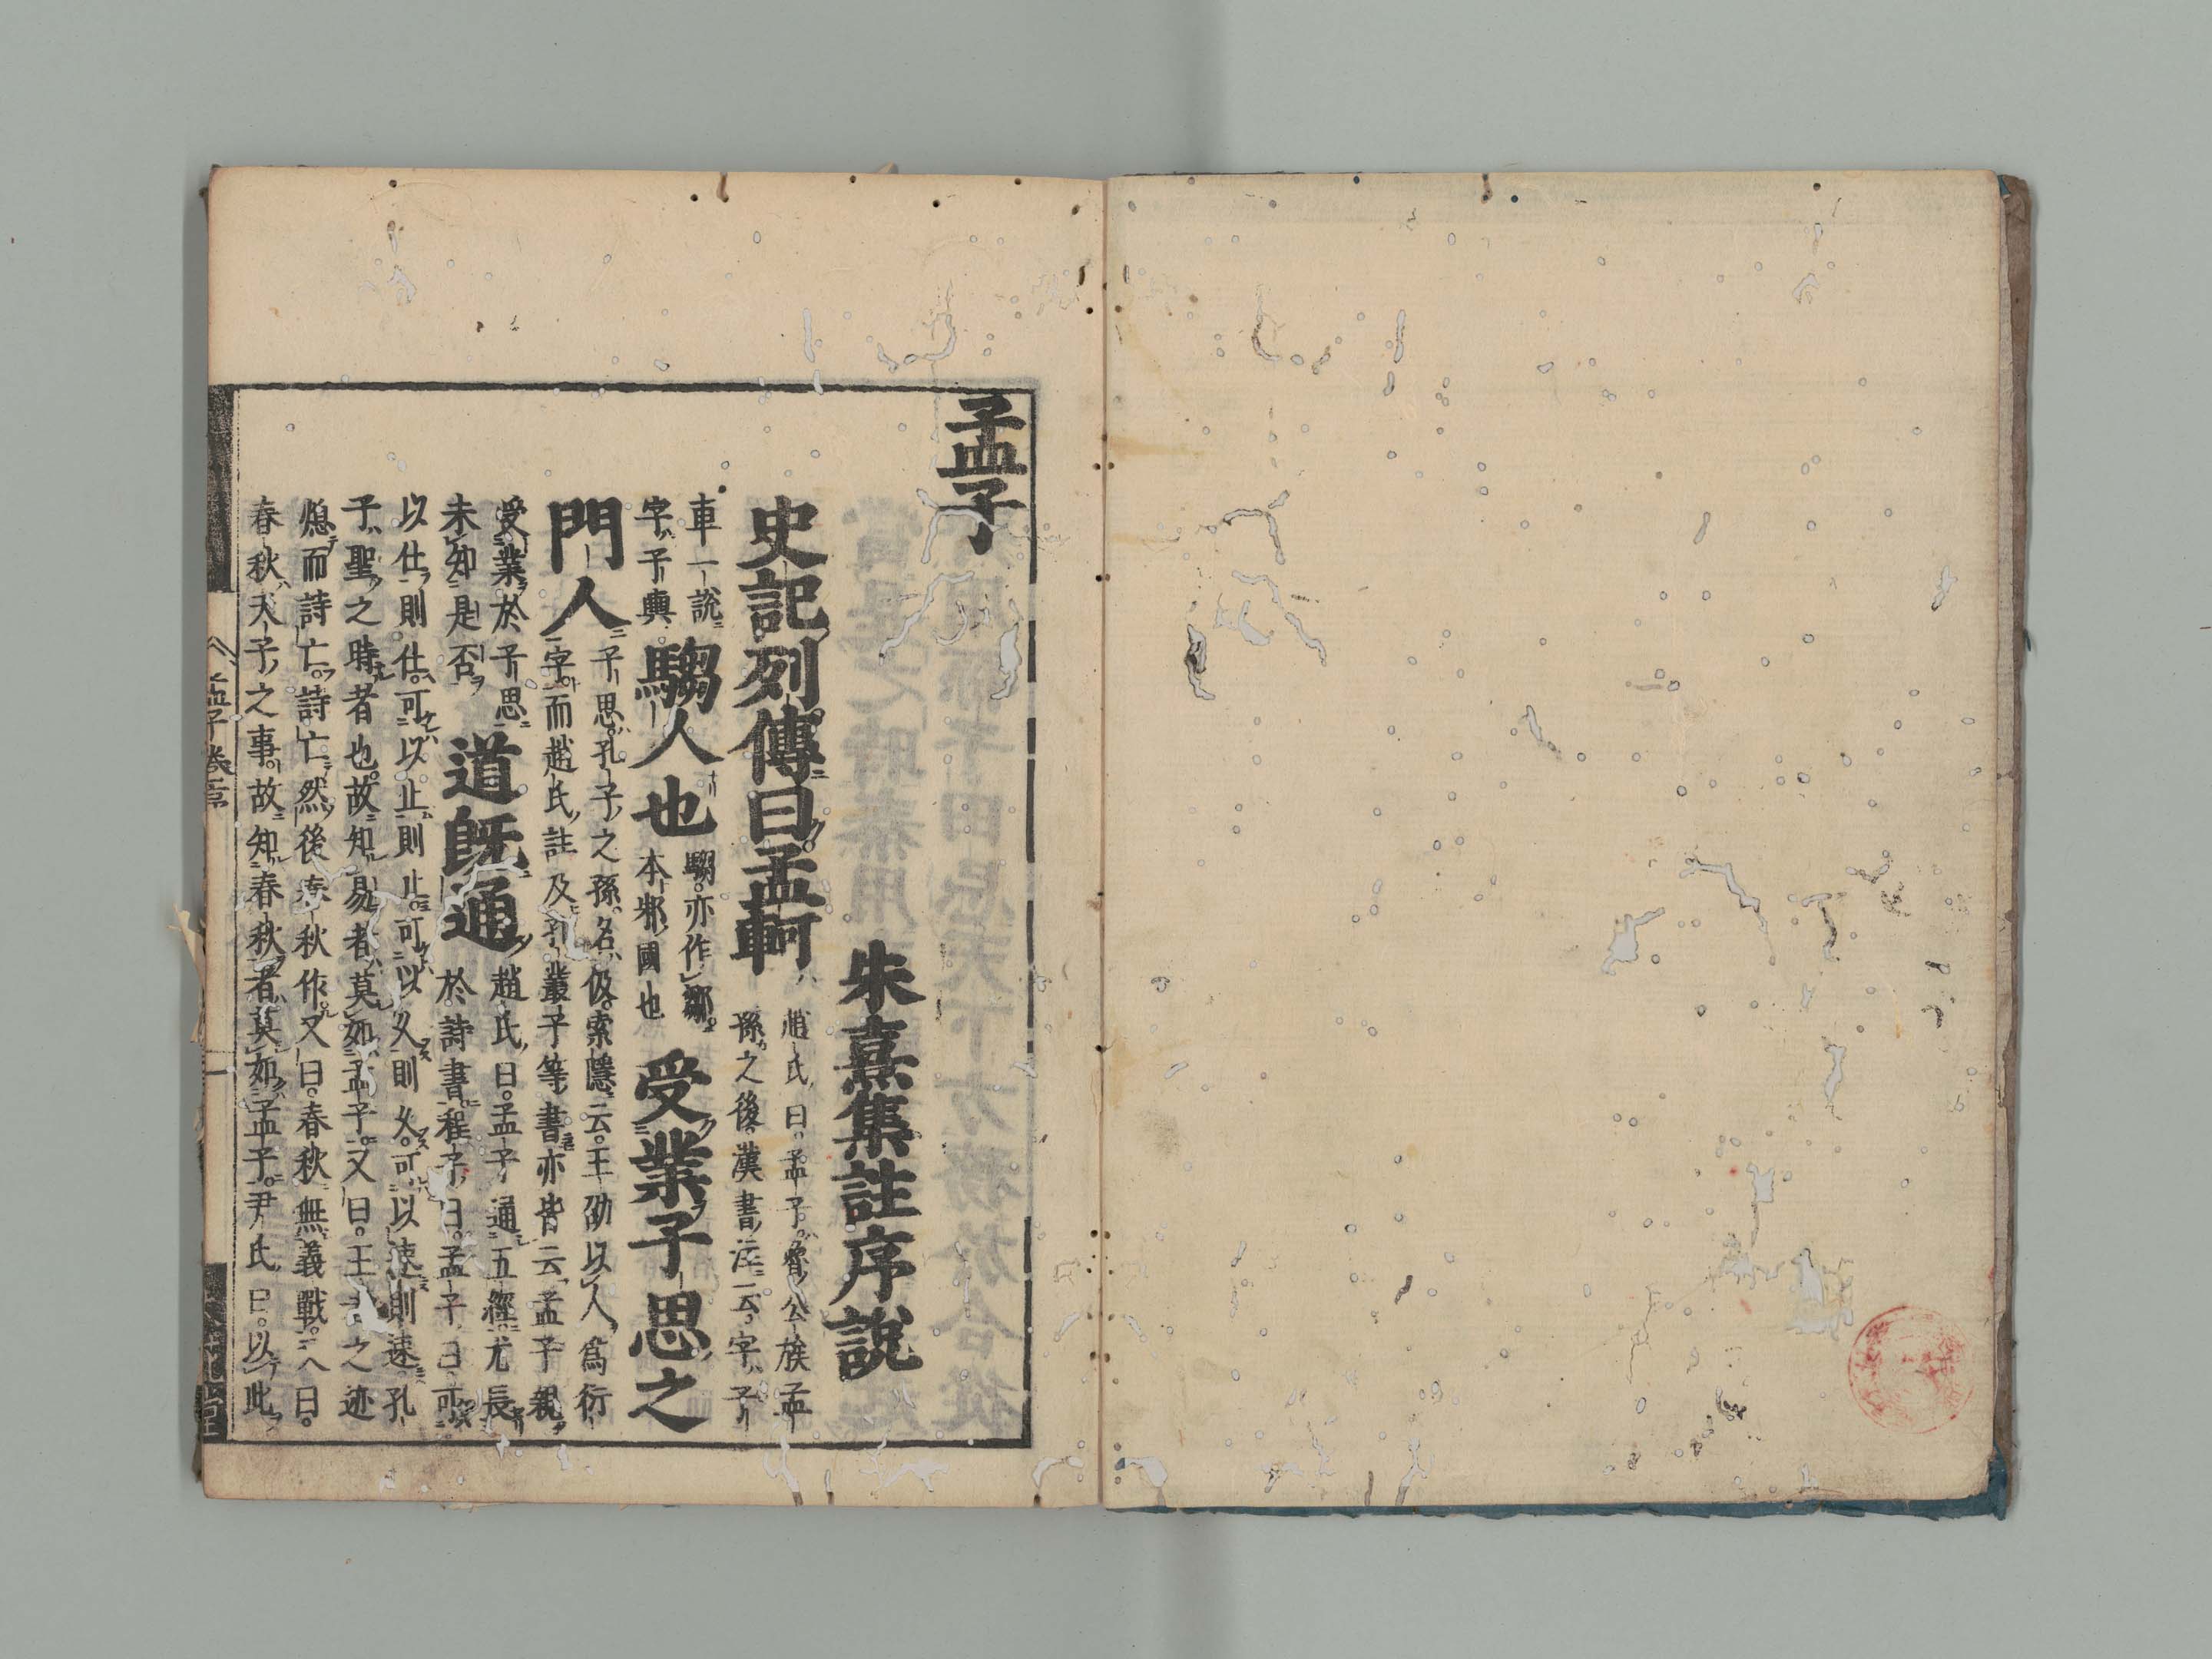 孟子
朱熹集註序說
史記列傳曰。孟軻
趙氏曰。孟子。魯公族孟
孫之後。漢書注云。字子
車一說
字子輿
騶人也
騶。亦作鄒。
本邾國也
受業子思之
門人
子思。孔子之孫。名伋。索隱云。王劭以人爲衍
字。而趙氏註及孔叢子等書亦皆云孟子親
受業於子思
未知是否
道既通
趙氏曰。孟子通五經。尤長
於詩書。程子曰。孟子曰可
以仕則仕。可以止則止。可以久則久。可以速則速。孔
子聖之時者也。故知易者莫如孟子。又曰。王者之迹
熄而詩亡。詩亡然後春秋作。又曰。春秋無義戰。又曰。
春秋天子之事。故知春秋者莫如孟子。尹氏曰。以此